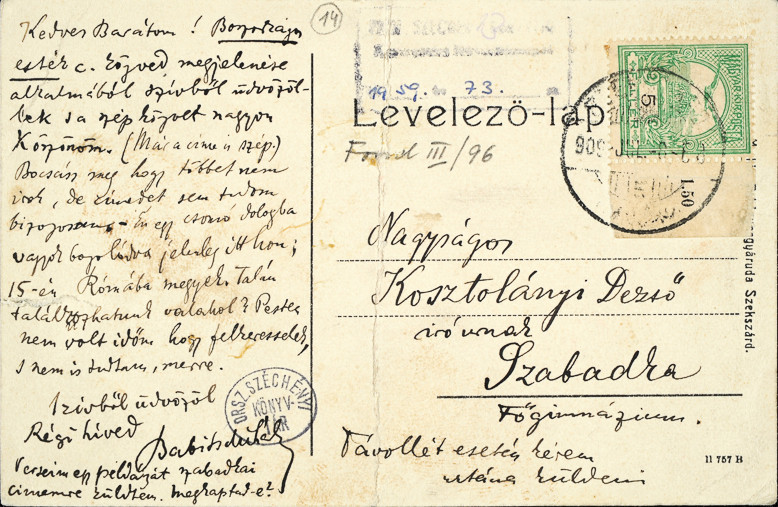 Kedves Barátom! Boszorkányos
esték c. köteted megjelenése
alkalmából szívből üdvözöl-
lek s a szép könyvet nagyon
köszönöm. (Már a címe is szép.)
Bocsáss meg hogy többet nem
írok, de címedet sem tudom
bizonyosan. Én egy csomó dologba
vagyok bogozódva jelenleg itthon;
15-én Rómába megyek. Talán
találkozhatunk valahol? Pesten
nem volt időm hogy felkeresselek,
s nem is tudtam, merre.
Szívből üdvözöl
Régi híved
Babits Mihály
Verseim egy példányát szabadkai
címemre küldtem. Megkaptad-e?
14
ORSZ. SZÉCHÉNYI
KÖNYV-
TÁR
1959. 73.
Levelező-lap
Fond III/96
Nagyságos
Kosztolányi Dezső
író úrnak
Szabadka
Főgimnázium.
Távollét esetén kérem
utána küldeni
11 757 B
MAGYAR KIR. POSTA
5
1.50
Szekszárd.